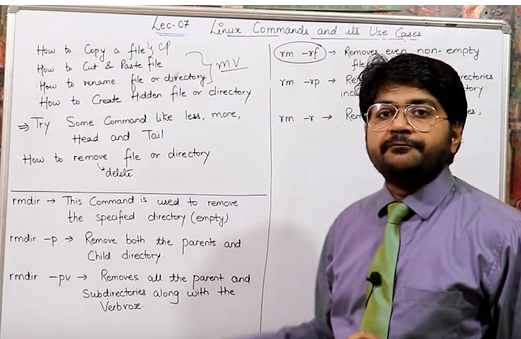 Lec-07 Linux Commands and its Use Cases
How to Copy a file } CP
How to Cut & Paste file
How to rename file or directory } MV
How to Create Hidden file or directory
⇒ Try Some Command like less, more,
Head and Tail
How to remove file or directory
↳ delete
rmdir → This Command is used to remove
the specified directory (empty)
rmdir -p → Remove both the parents and
Child directory.
rmdir -pv → Removes all the parent and
Subdirectories along with the
Verbrose.
rm -rf → Removes even non-empty
rm -rp →
rm -r →